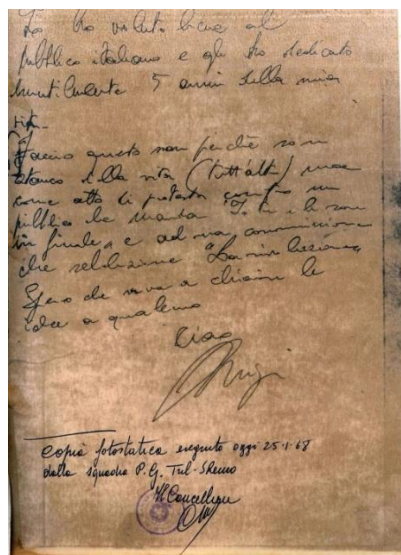 Io ho voluto bene al
pubblico italiano e gli ho dedicato
inutilmente 5 anni della mia
vita.
Faccio questo non perché sono
stanco della vita (tutt'altro) ma
come atto di protesta contro un
pubblico che manda "Io tu e le rose"
in finale e ad una commissione
che seleziona "La rivoluzione".
Spero che serva a chiarire le
idee a qualcuno.
Ciao
Luigi
Copia fotostatica eseguita oggi 25-1-68
dalla squadra P.G. Trib-SRemo
Il Cancelliere